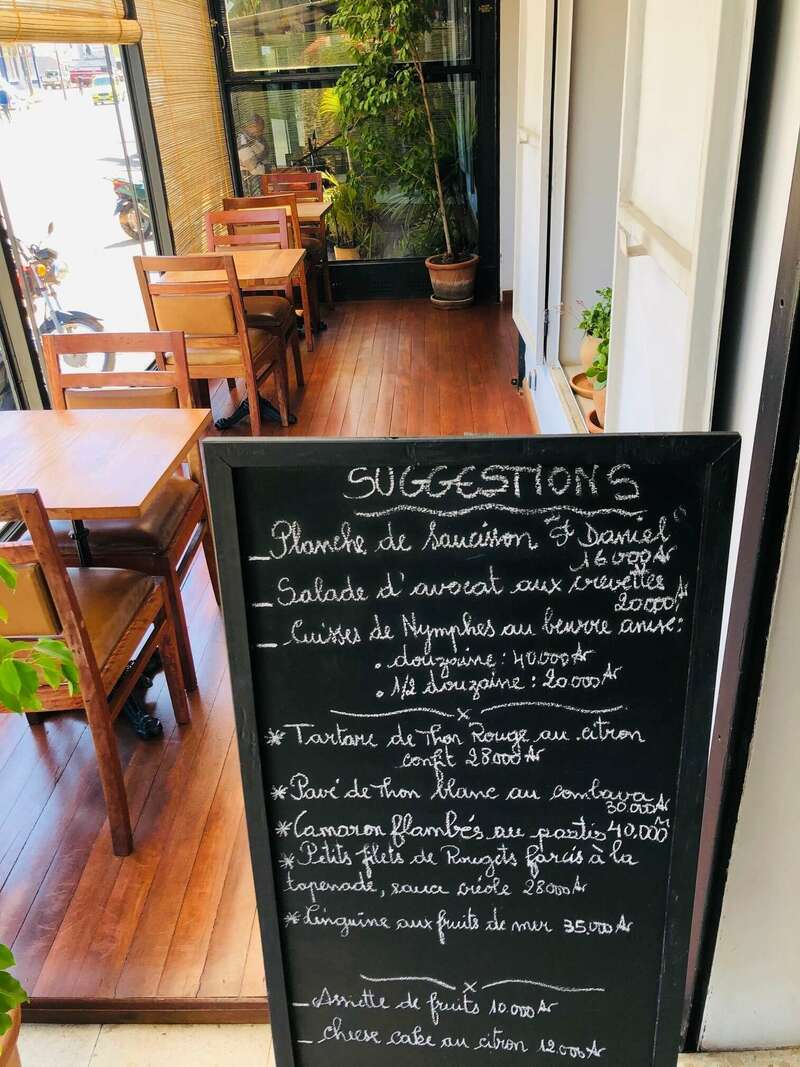 SUGGESTIONS
_ Planche de saucisson "St Daniel"
16 000 Ar
_ Salade d'avocat aux crevettes
20000 Ar
_ Cuisses de Nymphes au beurre anisé:
. douzaine : 40.000 Ar
. 1/2 douzaine : 20.000 Ar
x
* Tartare de Thon Rouge au citron
confit 28000 Ar
* Pavé de Thon blanc au combava
30.000 Ar
* Camaron flambés au pastis 40,000 Ar
* Petits filets de Rougets farcis à la
tapenade, sauce créole 28000 Ar
* Linguine aux fruits de mer 35,000 Ar
x
_ Assiette de fruits 10.000 Ar
_ cheese cake au citron 12.000 Ar